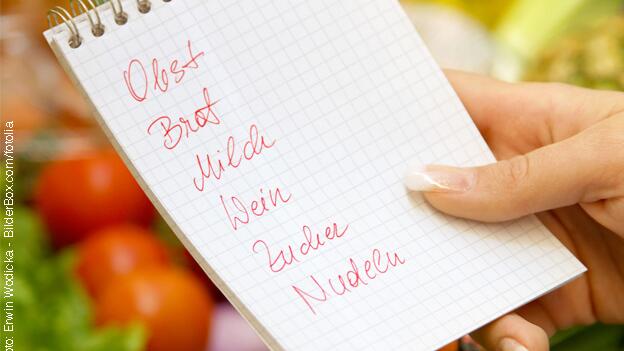 Obst
Brot
Milch
Wein
Zucher
Nudeln
oto: Erwin Wodicka - BilderBox.com/fotolia